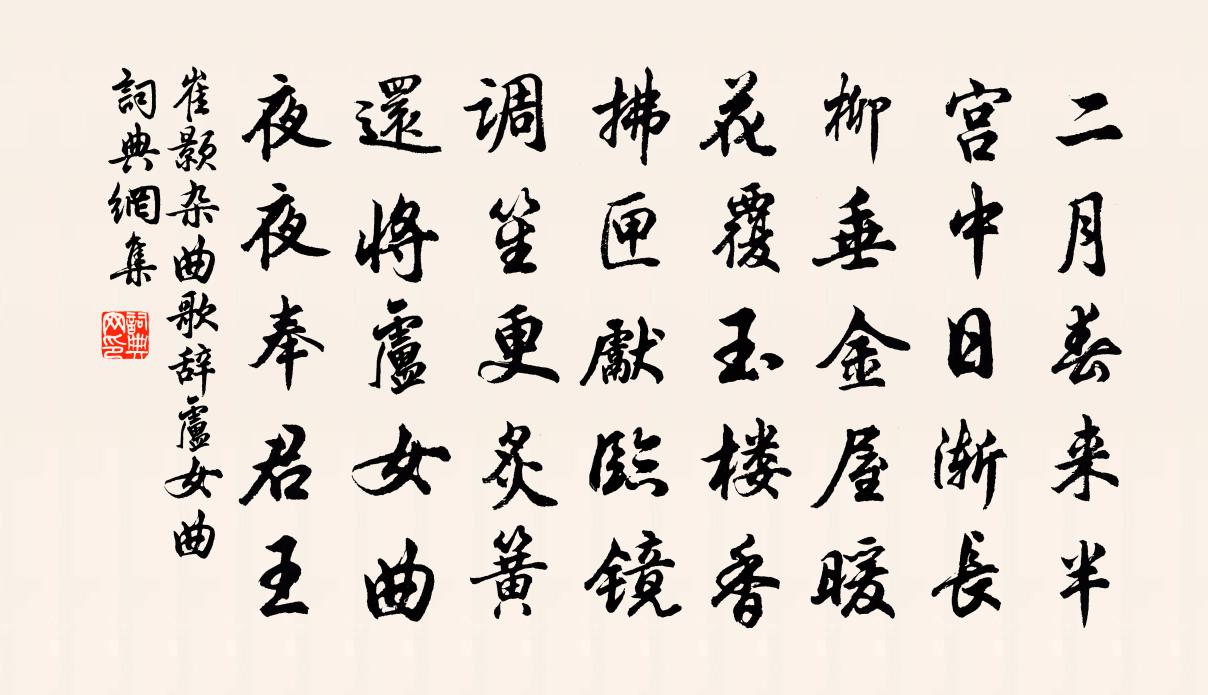 二月春来半
宫中日渐長
柳垂金屋暖
花覆玉楼香
拂匣獻臨镜
调笙更炙簧
還將盧女曲
夜夜奉君王
崔颢杂曲歌辞盧女曲
詞典網集
詞典网印